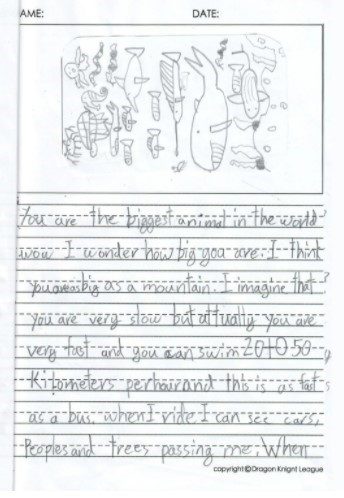 AME:
DATE:
You are the biggest animal in the world
wow I wonder how big goa are. I think
you areas big as a mountain. I imagine that
you are very slow but attually you are
very fast and you can swim 20 to 50
Kilometers perhair and this is as fast
as a bus. when I ride I can see cars,
Peoples and trees passing me. When
copyright©Dragon Knight League